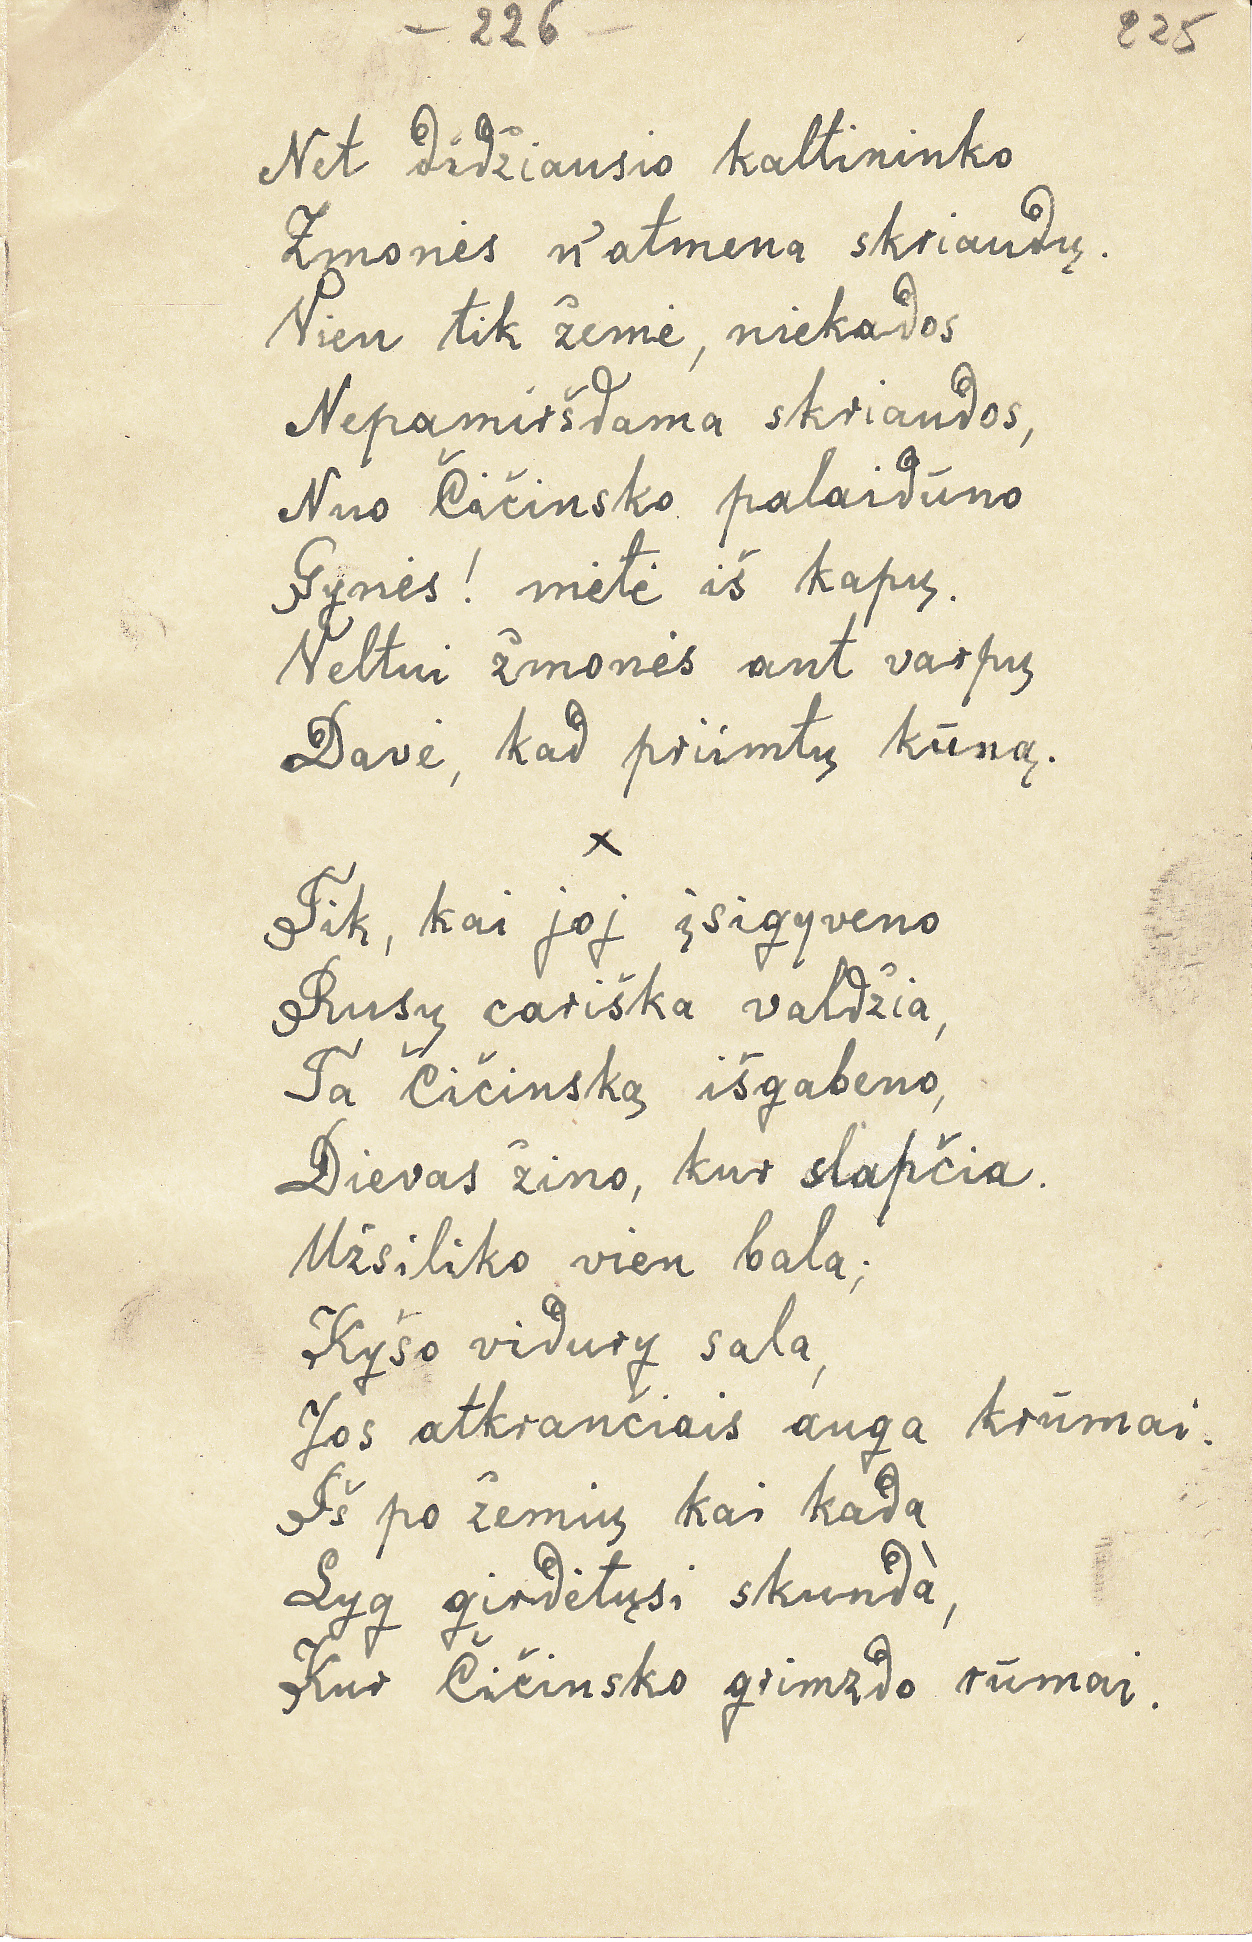 - 226 -
225
Net didžiausio kaltininko
Žmonės n'atmena skriaudų.
Vien tik žemė, niekados
Nepamiršdama skriaudos,
Nuo Čičinsko palaidūno
Gynės! mėtė iš kapų.
Veltui žmonės ant varpų
Davė, kad priimtų kūną.
x
Tik, kai joj įsigyveno
Rusų cariška valdžia,
Ta Čičinską išgabeno,
Dievas žino, kur slapčia.
Užsiliko vien bala;
Kyšo vidury sala,
Jos atkrančiais auga krūmai.
Iš po žemių kai kada
Lyg girdėtųsi skundà,
Kur Čičinsko grimzdo rūmai.